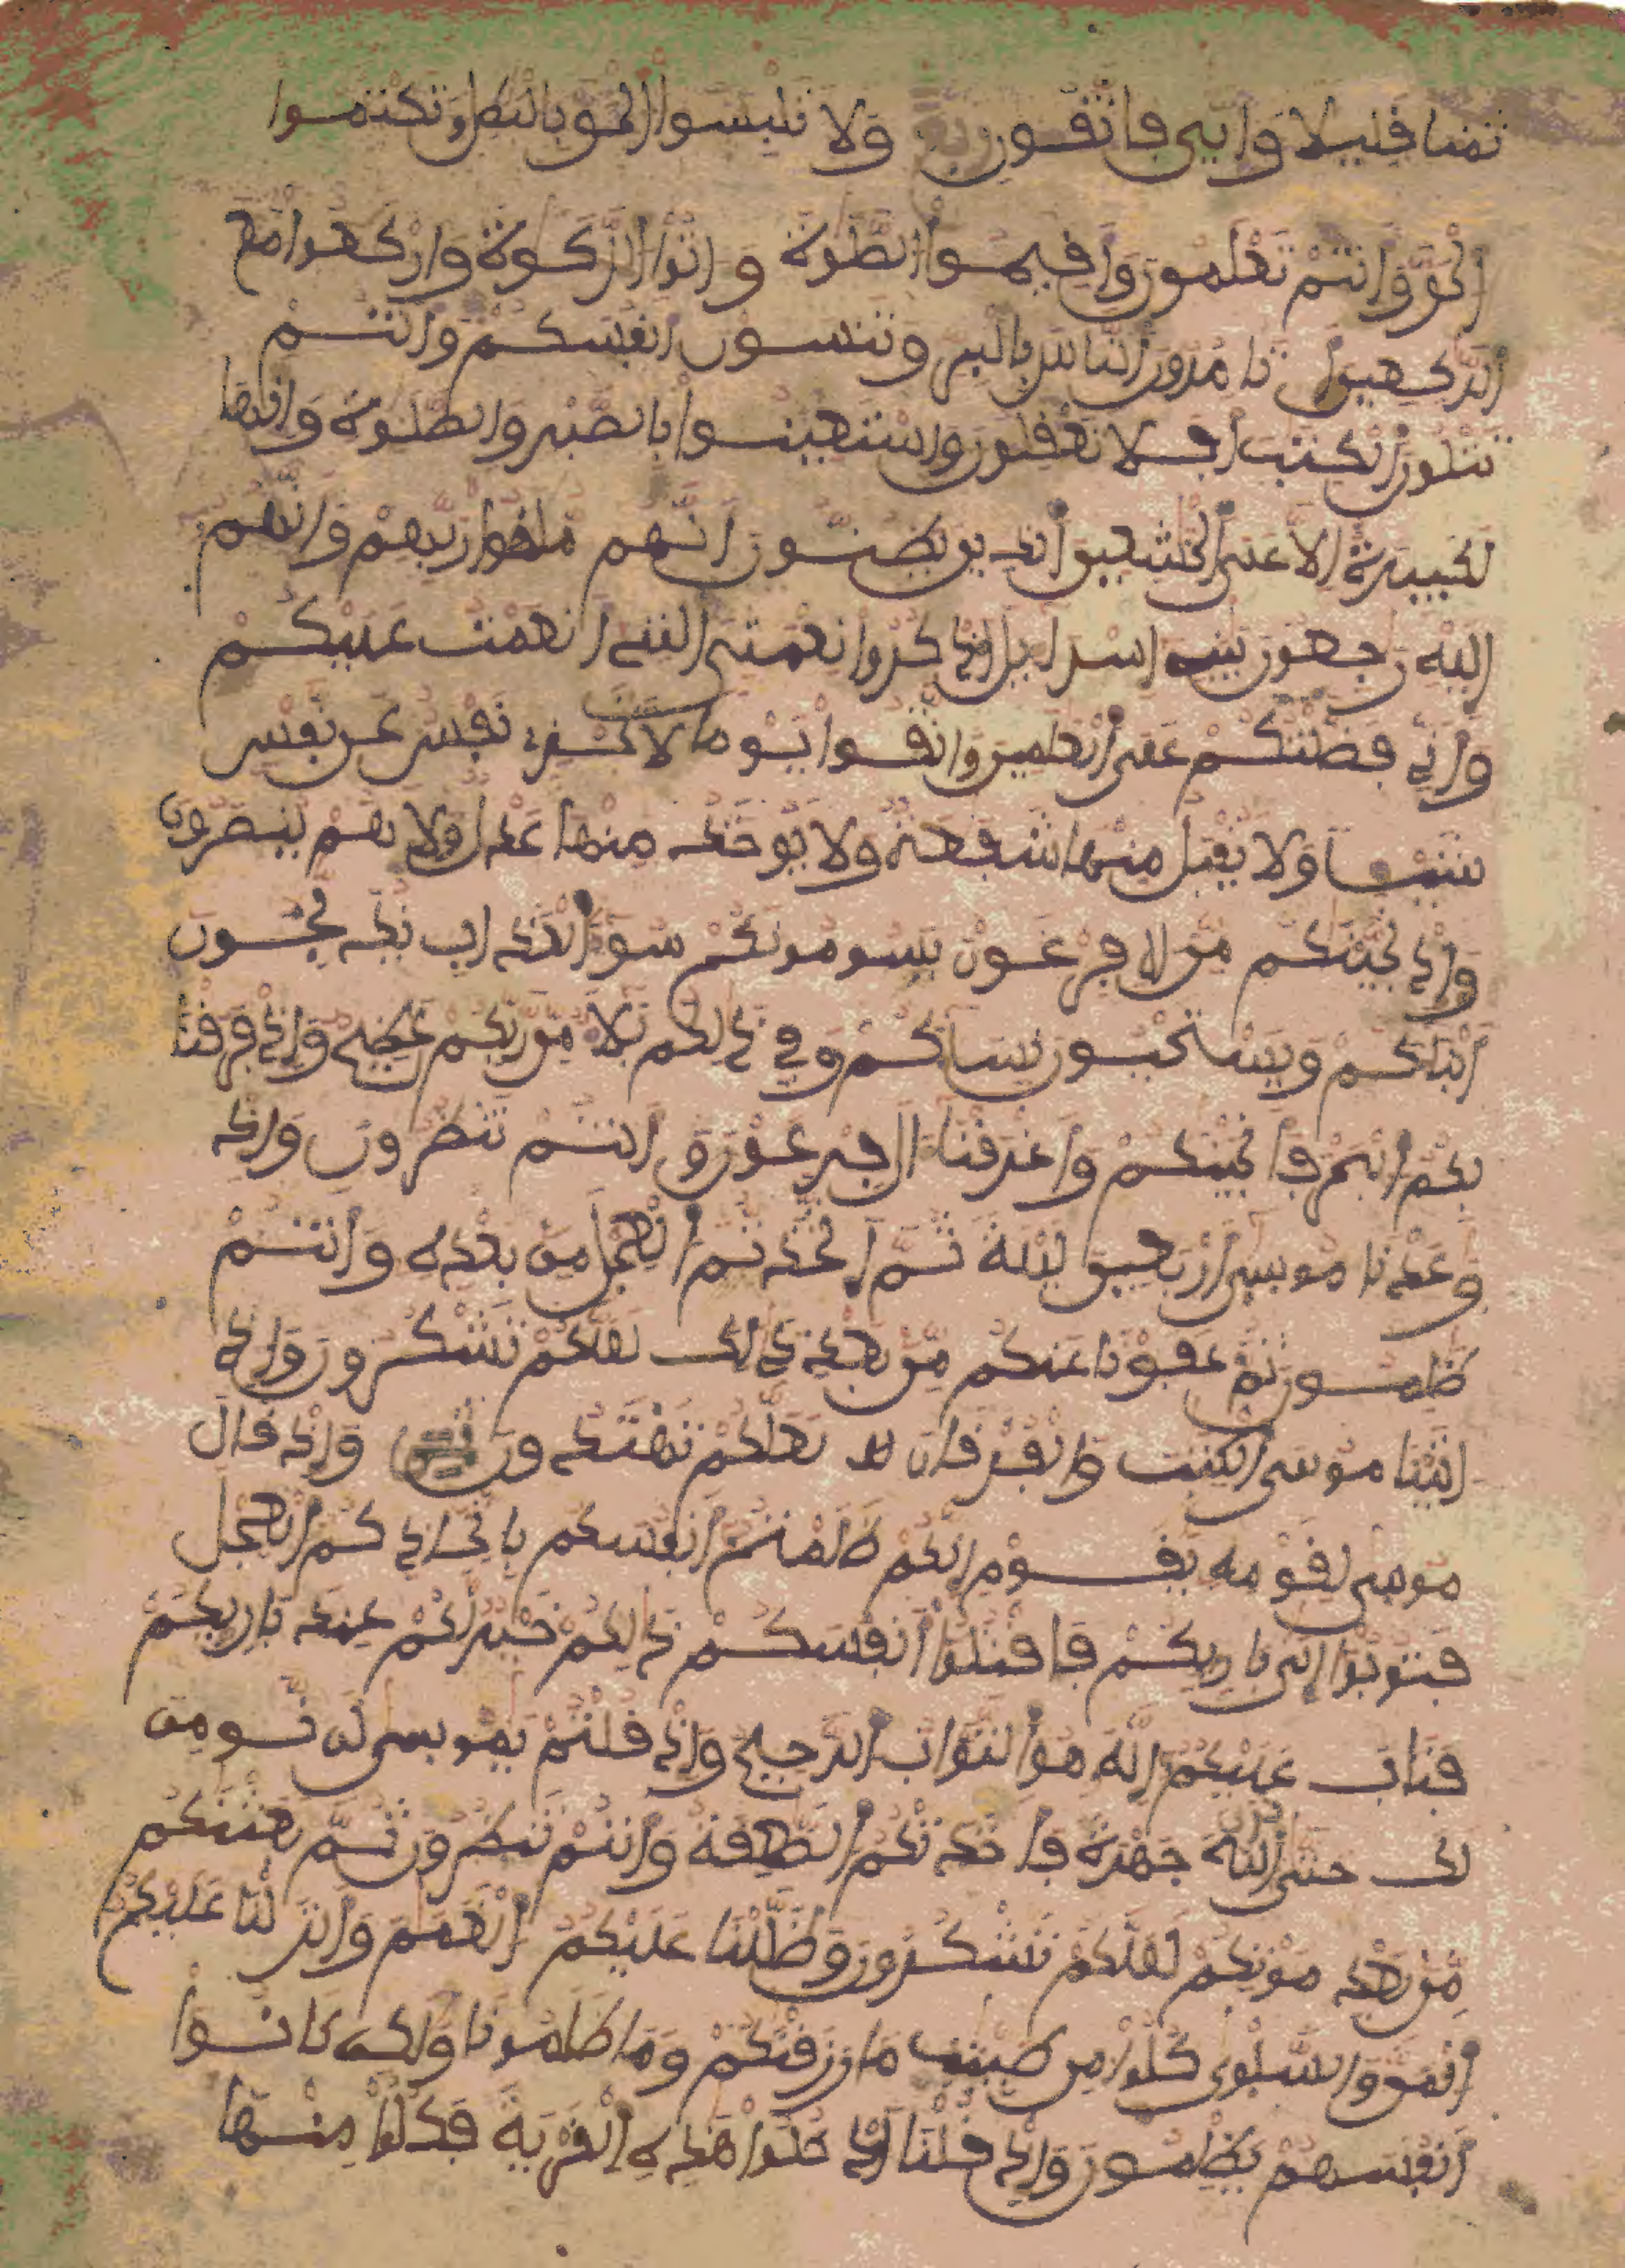 ثمنا قليلا وايي فاتقون ولا تلبسوا الحق بالبطل وتكتموا
الحق وانتم تعلمون واقيموا الصلوة واتوا الزكوة واركعوا مع
الركعين تامرون الناس بالبر وتنسون انفسكم وانتم
تتلون الكتب افلا تعقلون واستعينوا بالصبر والصلوة وانها
لكبيرة الا على الخشعين الذين يظنون انهم ملقوا ربهم وانهم
اليه رجعون يبني اسراءيل اذكروا نعمتي التي انعمت عليكم
واني فضلتكم على العلمين واتقوا يوما لا تجزي نفس عن نفس
شيـا ولا يقبل منها شفعة ولا يوخذ منها عدل ولا هم ينصرون
واذ نجينكم من ال فرعون يسومونكم سوء العذاب يذبحون
ابناكم ويستحيون نساكم وفي ذالكم بلا من ربكم عظيم واذ فرقنا
بكم البحر فانجينكم واغرقنا ال فرعون وانتم تنظرون واذ
وعدنا موسى اربعين ليلة ثم اتخذتم العجل من بعده وانتم
ظلمون ثم عفونا عنكم من بعد ذالك لعلكم تشكرون واذ
اتينا موسى الكتب والفرقان لعلكم تهتدون واذ قال
موسى لقومه يقوم انكم ظلمتم انفسكم باتخاذكم العجل
فتوبوا الى باريكم فاقتلوا انفسكم ذالكم خير لكم عند باريكم
فتاب عليكم انه هو التواب الرحيم واذ قلتم يموسى لن نومن
لك حتى نرى الله جهرة فاخذتكم الصعقة وانتم تنظرون ثم بعثنكم
من بعد موتكم لعلكم تشكرون وظللنا عليكم الغمم وانزلنا عليكم
المن والسلوى كلوا من طيبت ما رزقنكم وما ظلمونا ولكن كانوا
انفسهم يظلمون واذ قلنا ادخلوا هذه القرية فكلوا منها